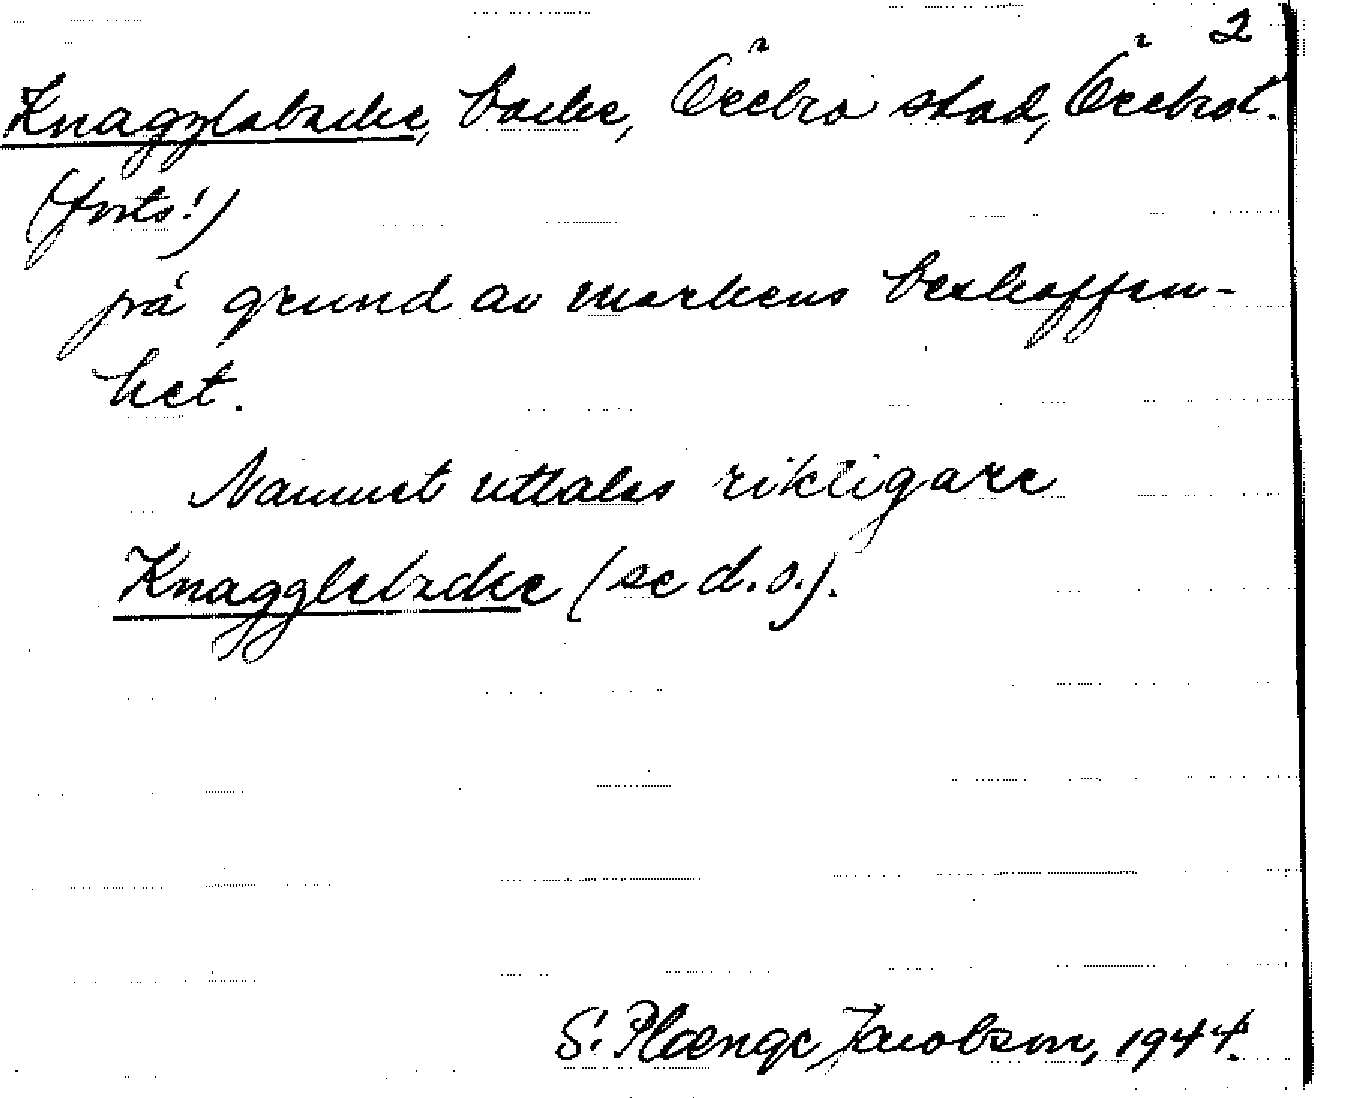 2
Knagglabacke, backe, Örebro stad, Örebrol.
(forts!)
på grund av markens beskaffen-
het.
Namnet uttalas riktigare
Knagglebacke (se d.o.).
S. Plænge Jacobson, 1944.